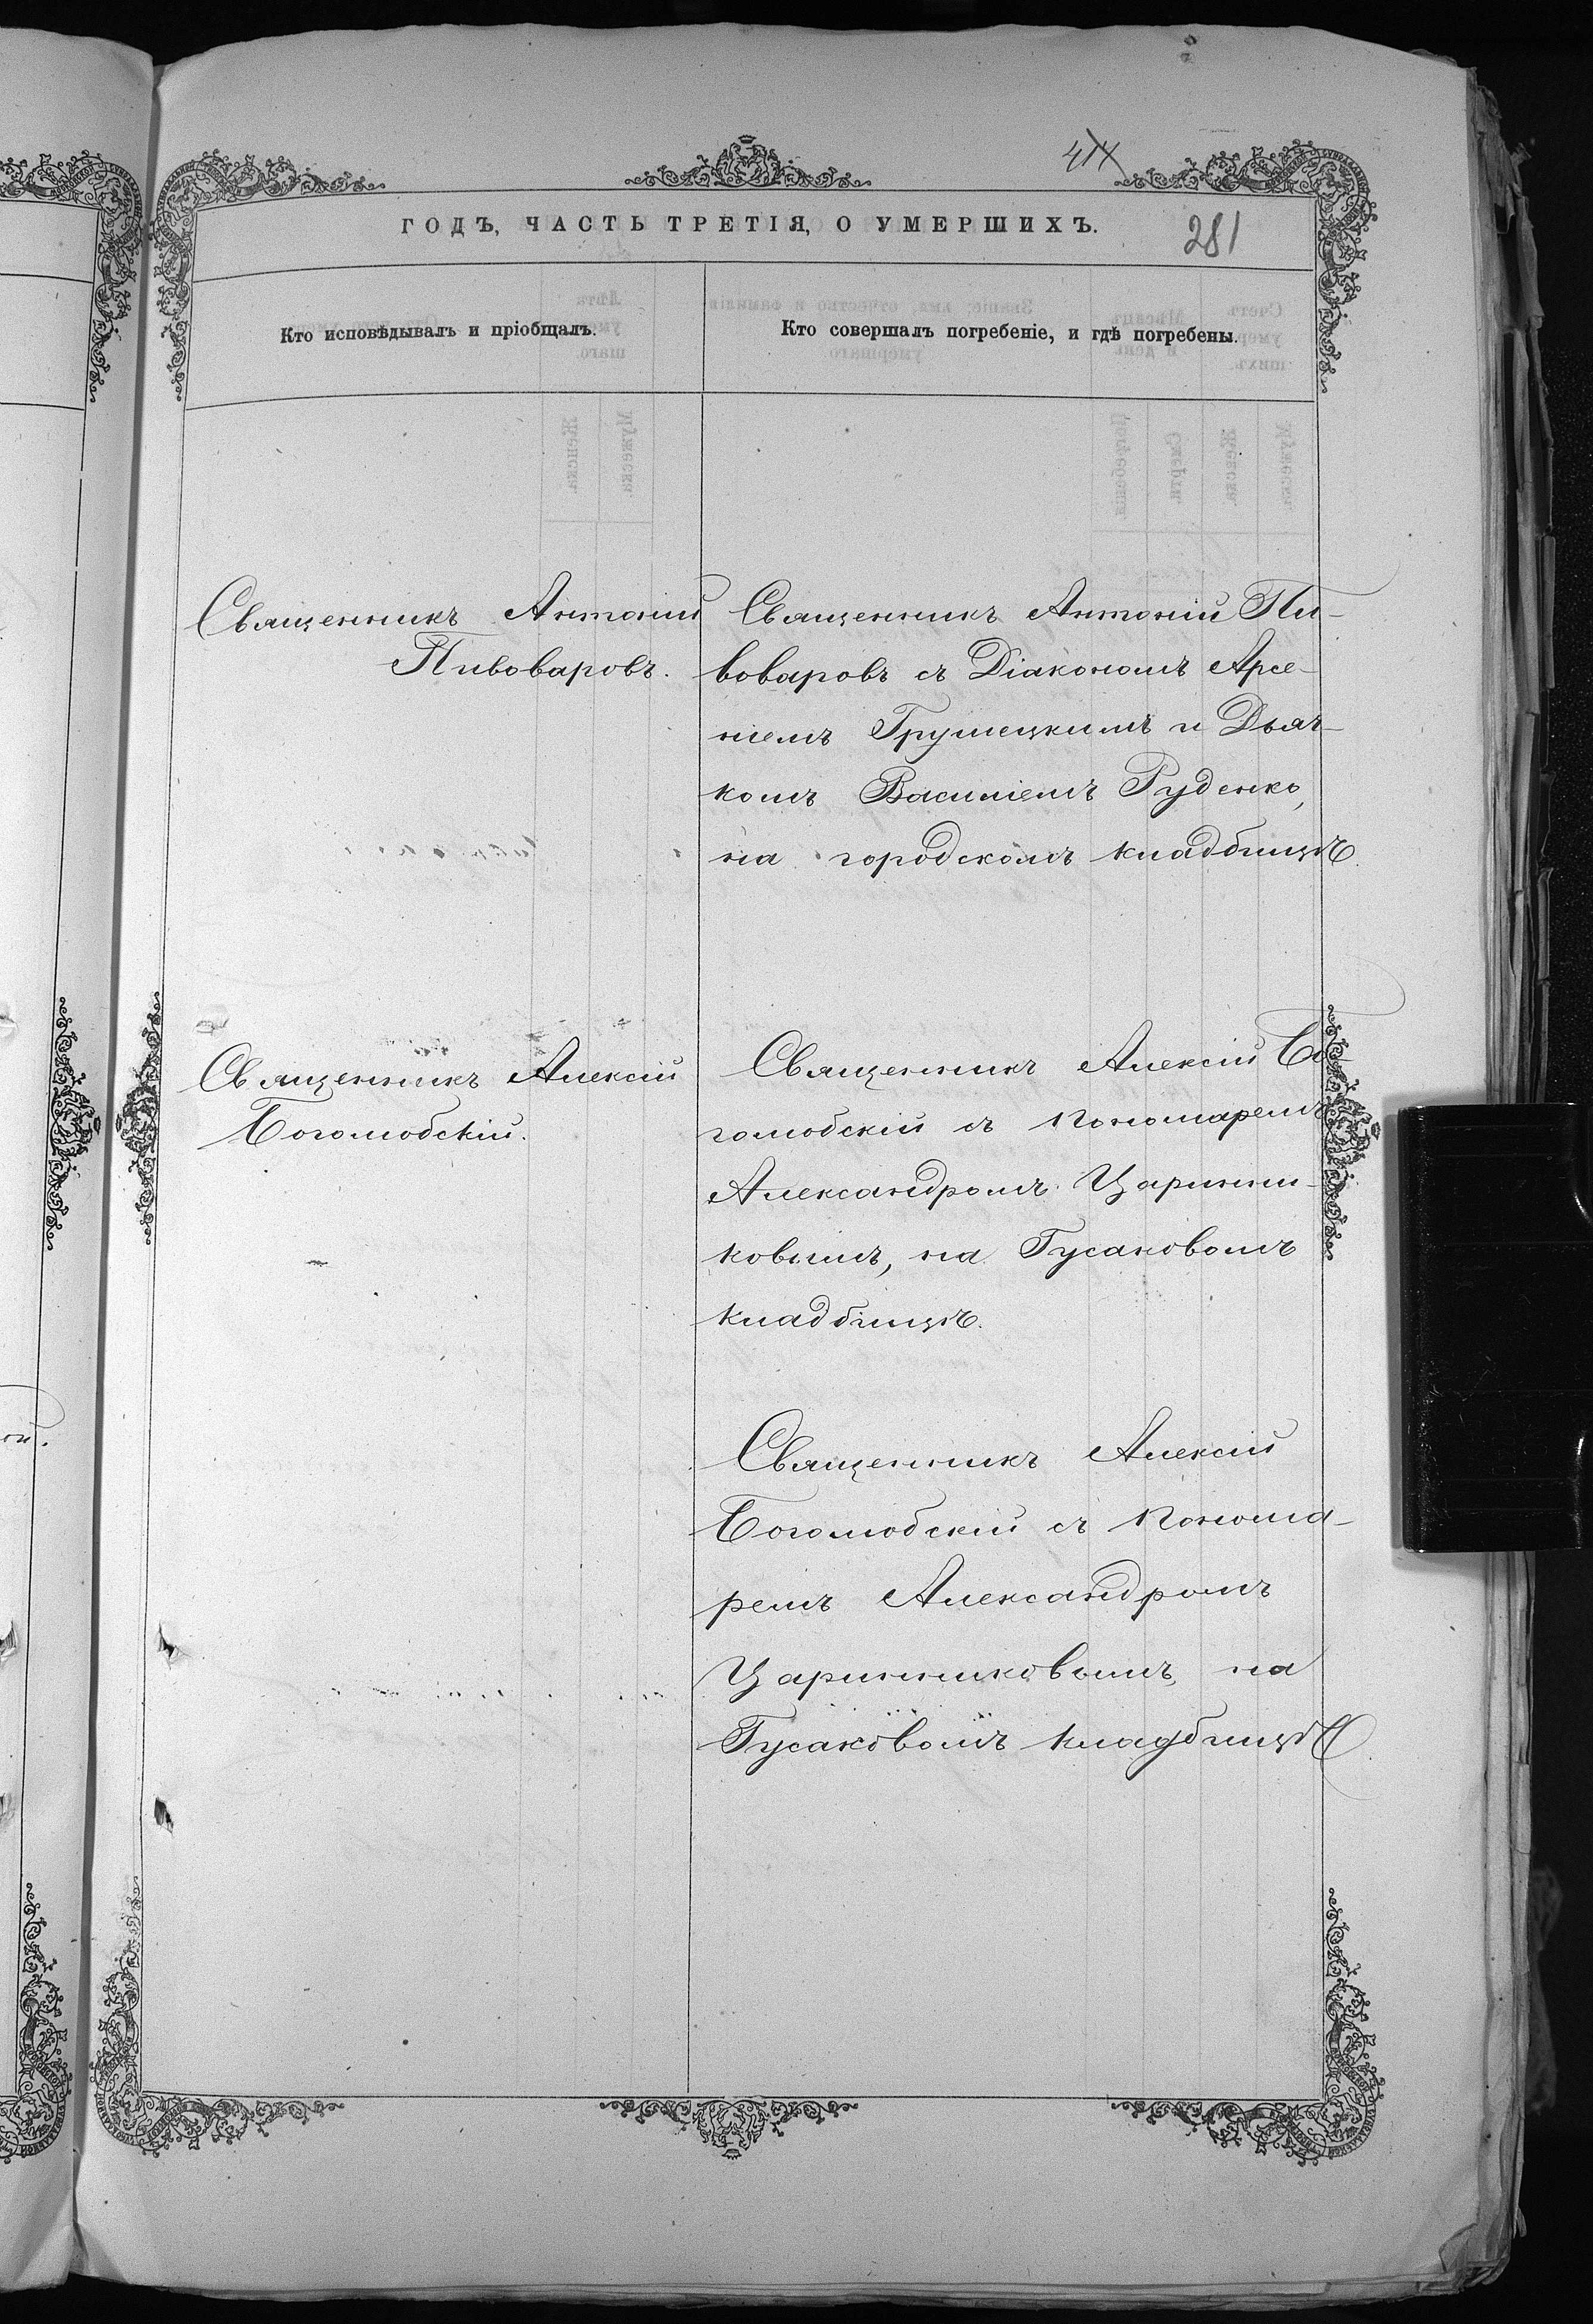 414
ГОДЪ, ЧАСТЬ ТРЕТІЯ, О УМЕРШИХЪ.
281
Кто исповѣдывалъ и пріобщалъ.
Кто совершалъ погребеніе, и гдѣ погребены.
Священникъ Антоній
Пивоваровъ.
Священникъ Антоній Пи-
воваровъ съ Діакономъ Арсе-
ніемъ Грушецкимъ и Дьяч-
комъ Василіемъ Руденко,
на городскомъ кладбищѣ.
Священникъ Алексій
Боголюбскій.
Священникъ Алексій Бо-
голюбскій съ Пономаремъ
Александромъ Царинни-
ковымъ, на Гусаковомъ
кладбищѣ.
Священникъ Алексій
Боголюбскій съ Понома-
ремъ Александромъ
Царинниковымъ, на
Гусаковомъ кладбищѣ.